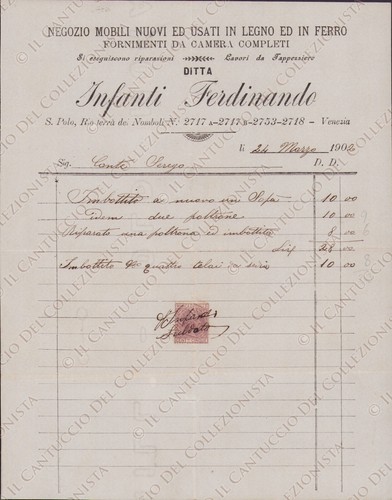 NEGOZIO MOBILI NUOVI ED USATI IN LEGNO ED IN FERRO
FORNIMENTI DA CAMERA COMPLETI
Si eseguiscono riparazioni Lavori da Tappezziere
DITTA
Infanti Ferdinando
S. Polo, Rio terrà dei Nomboli N. 2717 A-2717 B-2753-2718 - Venezia
li 24 Marzo 1902
Sig. Conte Serego D. D.
Imbottito a nuovo un Sofa 10 00
Idem due poltrone 10 00
Riparato una poltrona ed imbottita 8 00
28 00
Imbottito quattro telai 10 00
Infanti
Saldato
© IL CANTUCCIO DEL COLLEZIONISTA